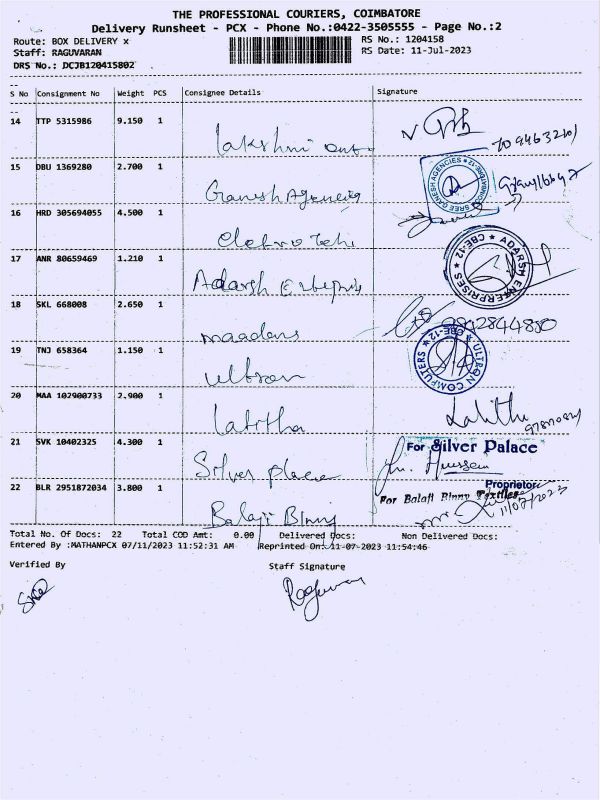 THE PROFESSIONAL COURIERS, COIMBATORE
Delivery Runsheet - PCX - Phone No.:0422-3505555 - Page No.:2
Route: BOX DELIVERY x RS No.: 1204158
Staff: RAGUVARAN RS Date: 11-Jul-2023
DRS No.: DCJB120415802
S No Consignment No Weight PCS Consignee Details Signature
14 TTP 5315986 9.150 1
Lakshmi
15 DBU 1369280 2.700 1
Ganesh Agencies
SREE GANESH AGENCIES
16 HRD 305694055 4.500 1
17 ANR 80659469 1.210 1
Adarsh
ADARSH ENTERPRISES CBE-12
18 SKL 668008 2.650 1
maadans
19 TNJ 658364 1.150 1
ultron
ULTRON COMPUTERS CBE-12
20 MAA 102900733 2.900 1
Lalitha
Lalitha
21 SVK 10402325 4.300 1
Silver place
For Silver Palace
Hussain
Proprietor
22 BLR 2951872034 3.800 1
Balaji Binny
For Balaji Binny Textiles
11/07/2023
Total No. Of Docs: 22 Total COD Amt: 0.00 Delivered Docs: Non Delivered Docs:
Entered By :MATHANPCX 07/11/2023 11:52:31 AM Reprinted On: 11-07-2023 11:54:46
Verified By Staff Signature
Raguvaran